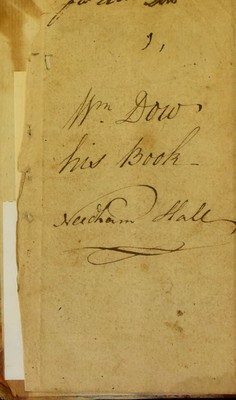 Dow
Wm. Dow
his Book -
Needham Hall